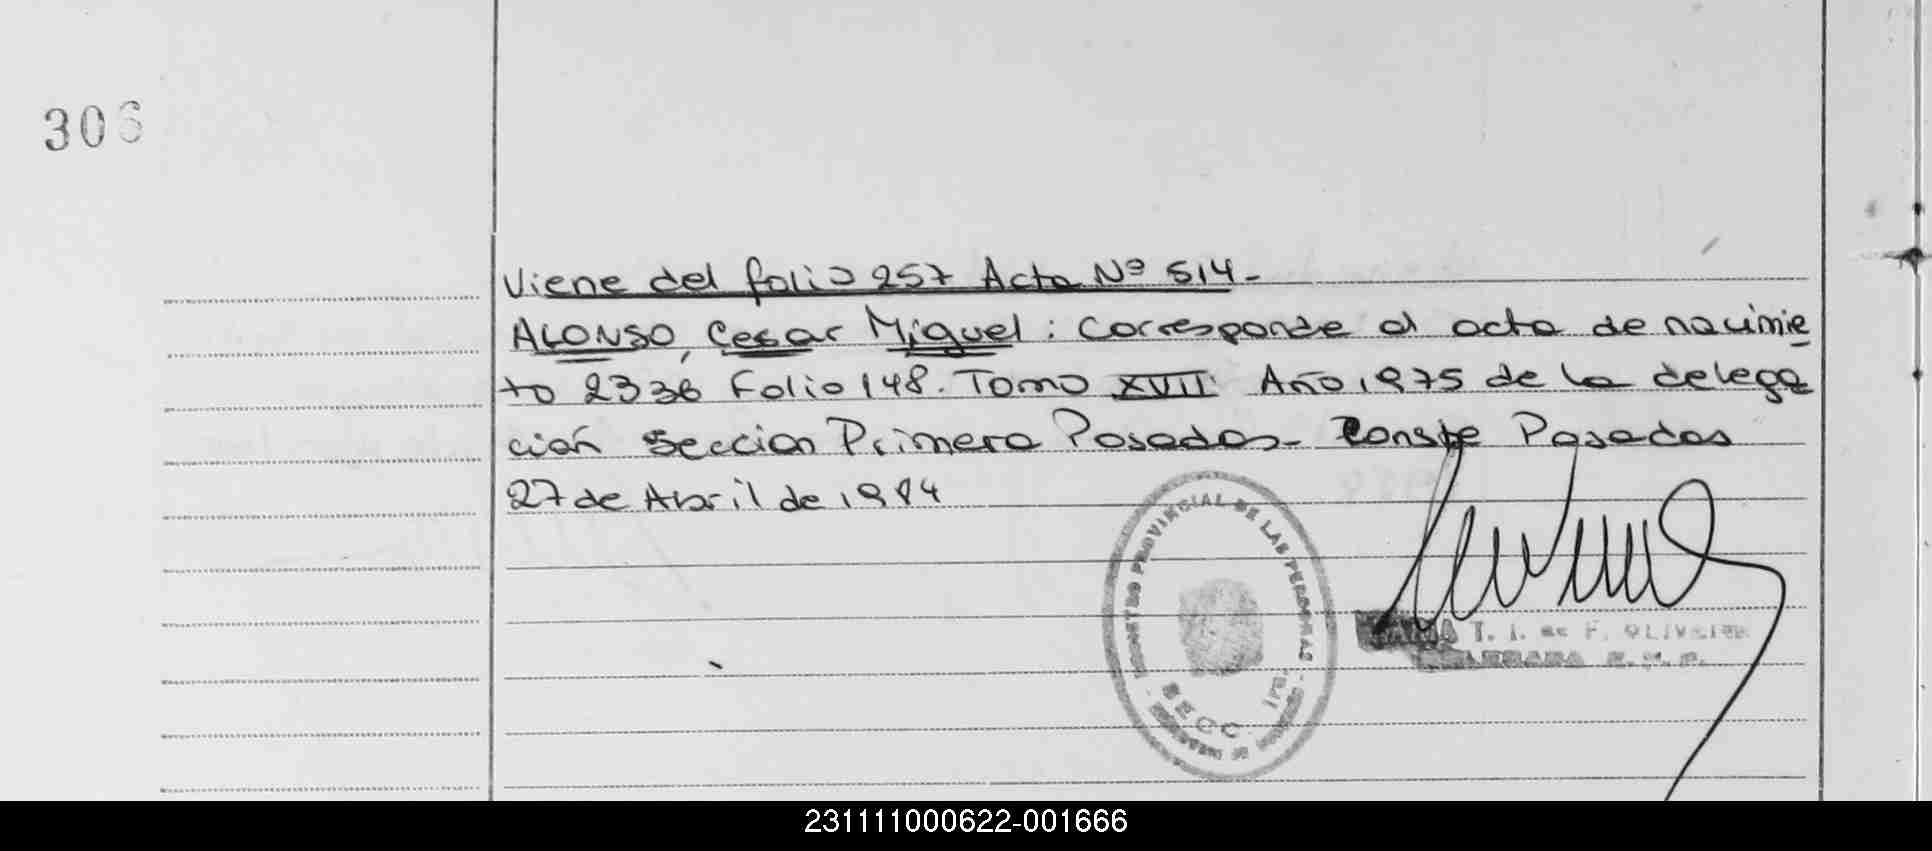 306
Viene del folio 257 Acta Nº 514-
ALONSO, Cesar Miguel: Corresponde al acta de nacimie
to 2336 Folio 148. Tomo XVII Año 1975 de la delega
ción Seccion Primera Posadas- Conste Posadas
27 de Abril de 1984
REGISTRO PROVINCIAL DE LAS PERSONAS
SECC. 1RA.
T. I. de F. OLIVEIRA
DELEGADA R. P. P.
231111000622-001666